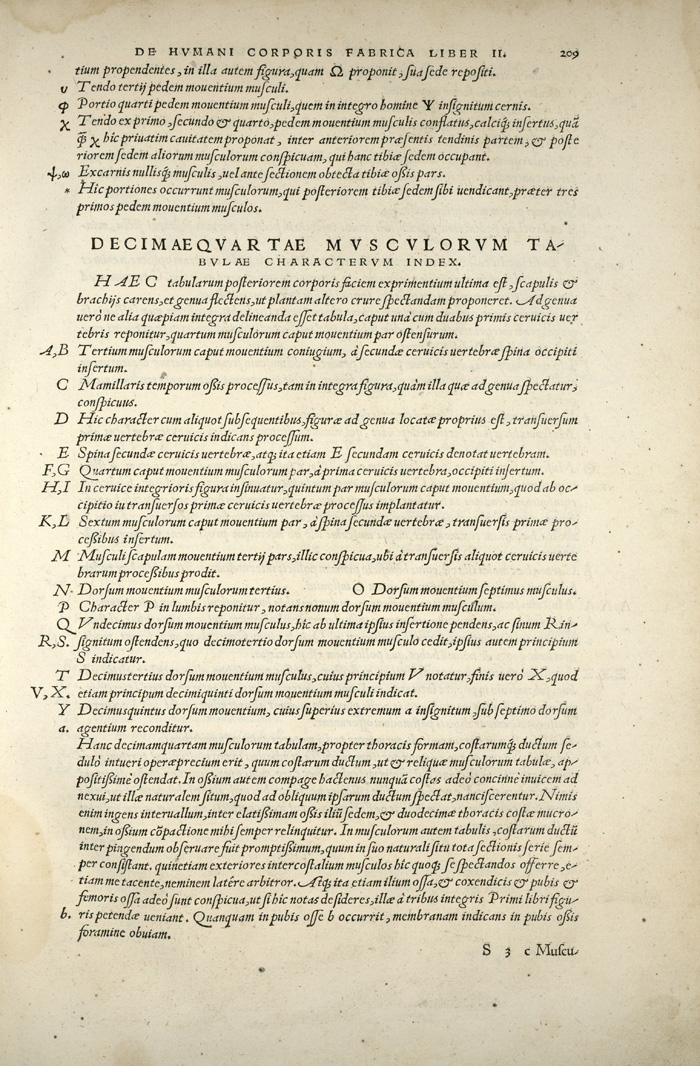 DE HVMANI CORPORIS FABRICA LIBER II. 209
tium propendentes, in illa autem figura, quam Ω proponit, sua sede repositi.
υ Tendo tertij pedem mouentium musculi.
φ Portio quarti pedem mouentium musculi, quem in integro homine Ψ insignitum cernis.
χ Tendo ex primo, secundo & quarto, pedem mouentium musculis conflatus, calciq́; insertus, quā
q̄ χ hic priuatim cauitatem proponat, inter anteriorem præsentis tendinis partem, & poste
riorem sedem aliorum musculorum conspicuam, qui hanc tibiæ sedem occupant.
ψ,ω Excarnis nullisq́; musculis, uel ante sectionem obtecta tibiæ oßis pars.
* Hic portiones occurrunt musculorum, qui posteriorem tibiæ sedem sibi uendicant, præter tres
primos pedem mouentium musculos.
DECIMAEQVARTAE MVSCVLORVM TA-
BVLAE CHARACTERVM INDEX.
HAEC tabularum posteriorem corporis faciem exprimentium ultima est, scapulis &
brachijs carens, et genua flectens, ut plantam altero crure spectandam proponeret. Ad genua
uerò ne alia quæpiam integra delineanda esset tabula, caput unà cum duabus primis ceruicis uer
tebris reponitur, quartum musculorum caput mouentium par ostensurum.
A,B Tertium musculorum caput mouentium coniugium, à secundæ ceruicis uertebræ spina occipiti
insertum.
C Mamillaris temporum oßis processus, tam in integra figura, quàm illa quæ ad genua spectatur,
conspicuus.
D Hic character cum aliquot subsequentibus, figuræ ad genua locatæ proprius est, transuersum
primæ uertebræ ceruicis indicans processum.
E Spina secundæ ceruicis uertebræ, atq; ita etiam E secundam ceruicis denotat uertebram.
F,G Quartum caput mouentium musculorum par, à prima ceruicis uertebra, occipiti insertum.
H,I In ceruice integrioris figura insinuatur, quintum par musculorum caput mouentium, quod ab oc-
cipitio in transuersos primæ ceruicis uertebræ processus implantatur.
K,L Sextum musculorum caput mouentium par, à spina secundæ uertebræ, transuersis primæ pro-
ceßibus insertum.
M Musculi scapulam mouentium tertij pars, illic conspicua, ubi à transuersis aliquot ceruicis uerte
brarum proceßibus prodit.
N Dorsum mouentium musculorum tertius. O Dorsum mouentium septimus musculus.
P Character P in lumbis reponitur, notans nonum dorsum mouentium musculum.
Q Vndecimus dorsum mouentium musculus, hic ab ultima ipsius insertione pendens, ac sinum R in-
R,S. signitum ostendens, quo decimotertio dorsum mouentium musculo cedit, ipsius autem principium
S indicatur.
T Decimustertius dorsum mouentium musculus, cuius principium V notatur, finis uerò X, quod
V,X. etiam principum decimiquinti dorsum mouentium musculi indicat.
Y Decimusquintus dorsum mouentium, cuius superius extremum a insignitum, sub septimo dorsum
a. agentium reconditur.
Hanc decimamquartam musculorum tabulam, propter thoracis formam, costarumq́; ductum se-
dulò intueri operæprecium erit, quum costarum ductum, ut & reliquæ musculorum tabulæ, ap-
positißimè ostendat. In oßium autem compage hactenus nunquā costas adeò concinnè inuicem ad
nexui, ut illæ naturalem situm, quod ad obliquum ipsarum ductum spectat, nanciscerentur. Nimis
enim ingens interuallum, inter elatißimam oßis iliū sedem, & duodecimæ thoracis costæ mucro-
nem, in oßium cōpactione mihi semper relinquitur. In musculorum autem tabulis, costarum ductū
inter pingendum obseruare fuit promptißimum, quum in suo naturali situ tota sectionis serie sem-
per consistant. quinetiam exteriores intercostalium musculos hic quoq; se spectandos offerre, e-
tiam me tacente, neminem latêre arbitror. Atq; ita etiam ilium ossa, & coxendicis & pubis &
femoris ossa adeò sunt conspicua, ut si hic notas desideres, illæ à tribus integris Primi libri figu-
b. ris petendæ ueniant. Quanquam in pubis osse b occurrit, membranam indicans in pubis oßis
foramine obuiam.
S 3 c Muscu-